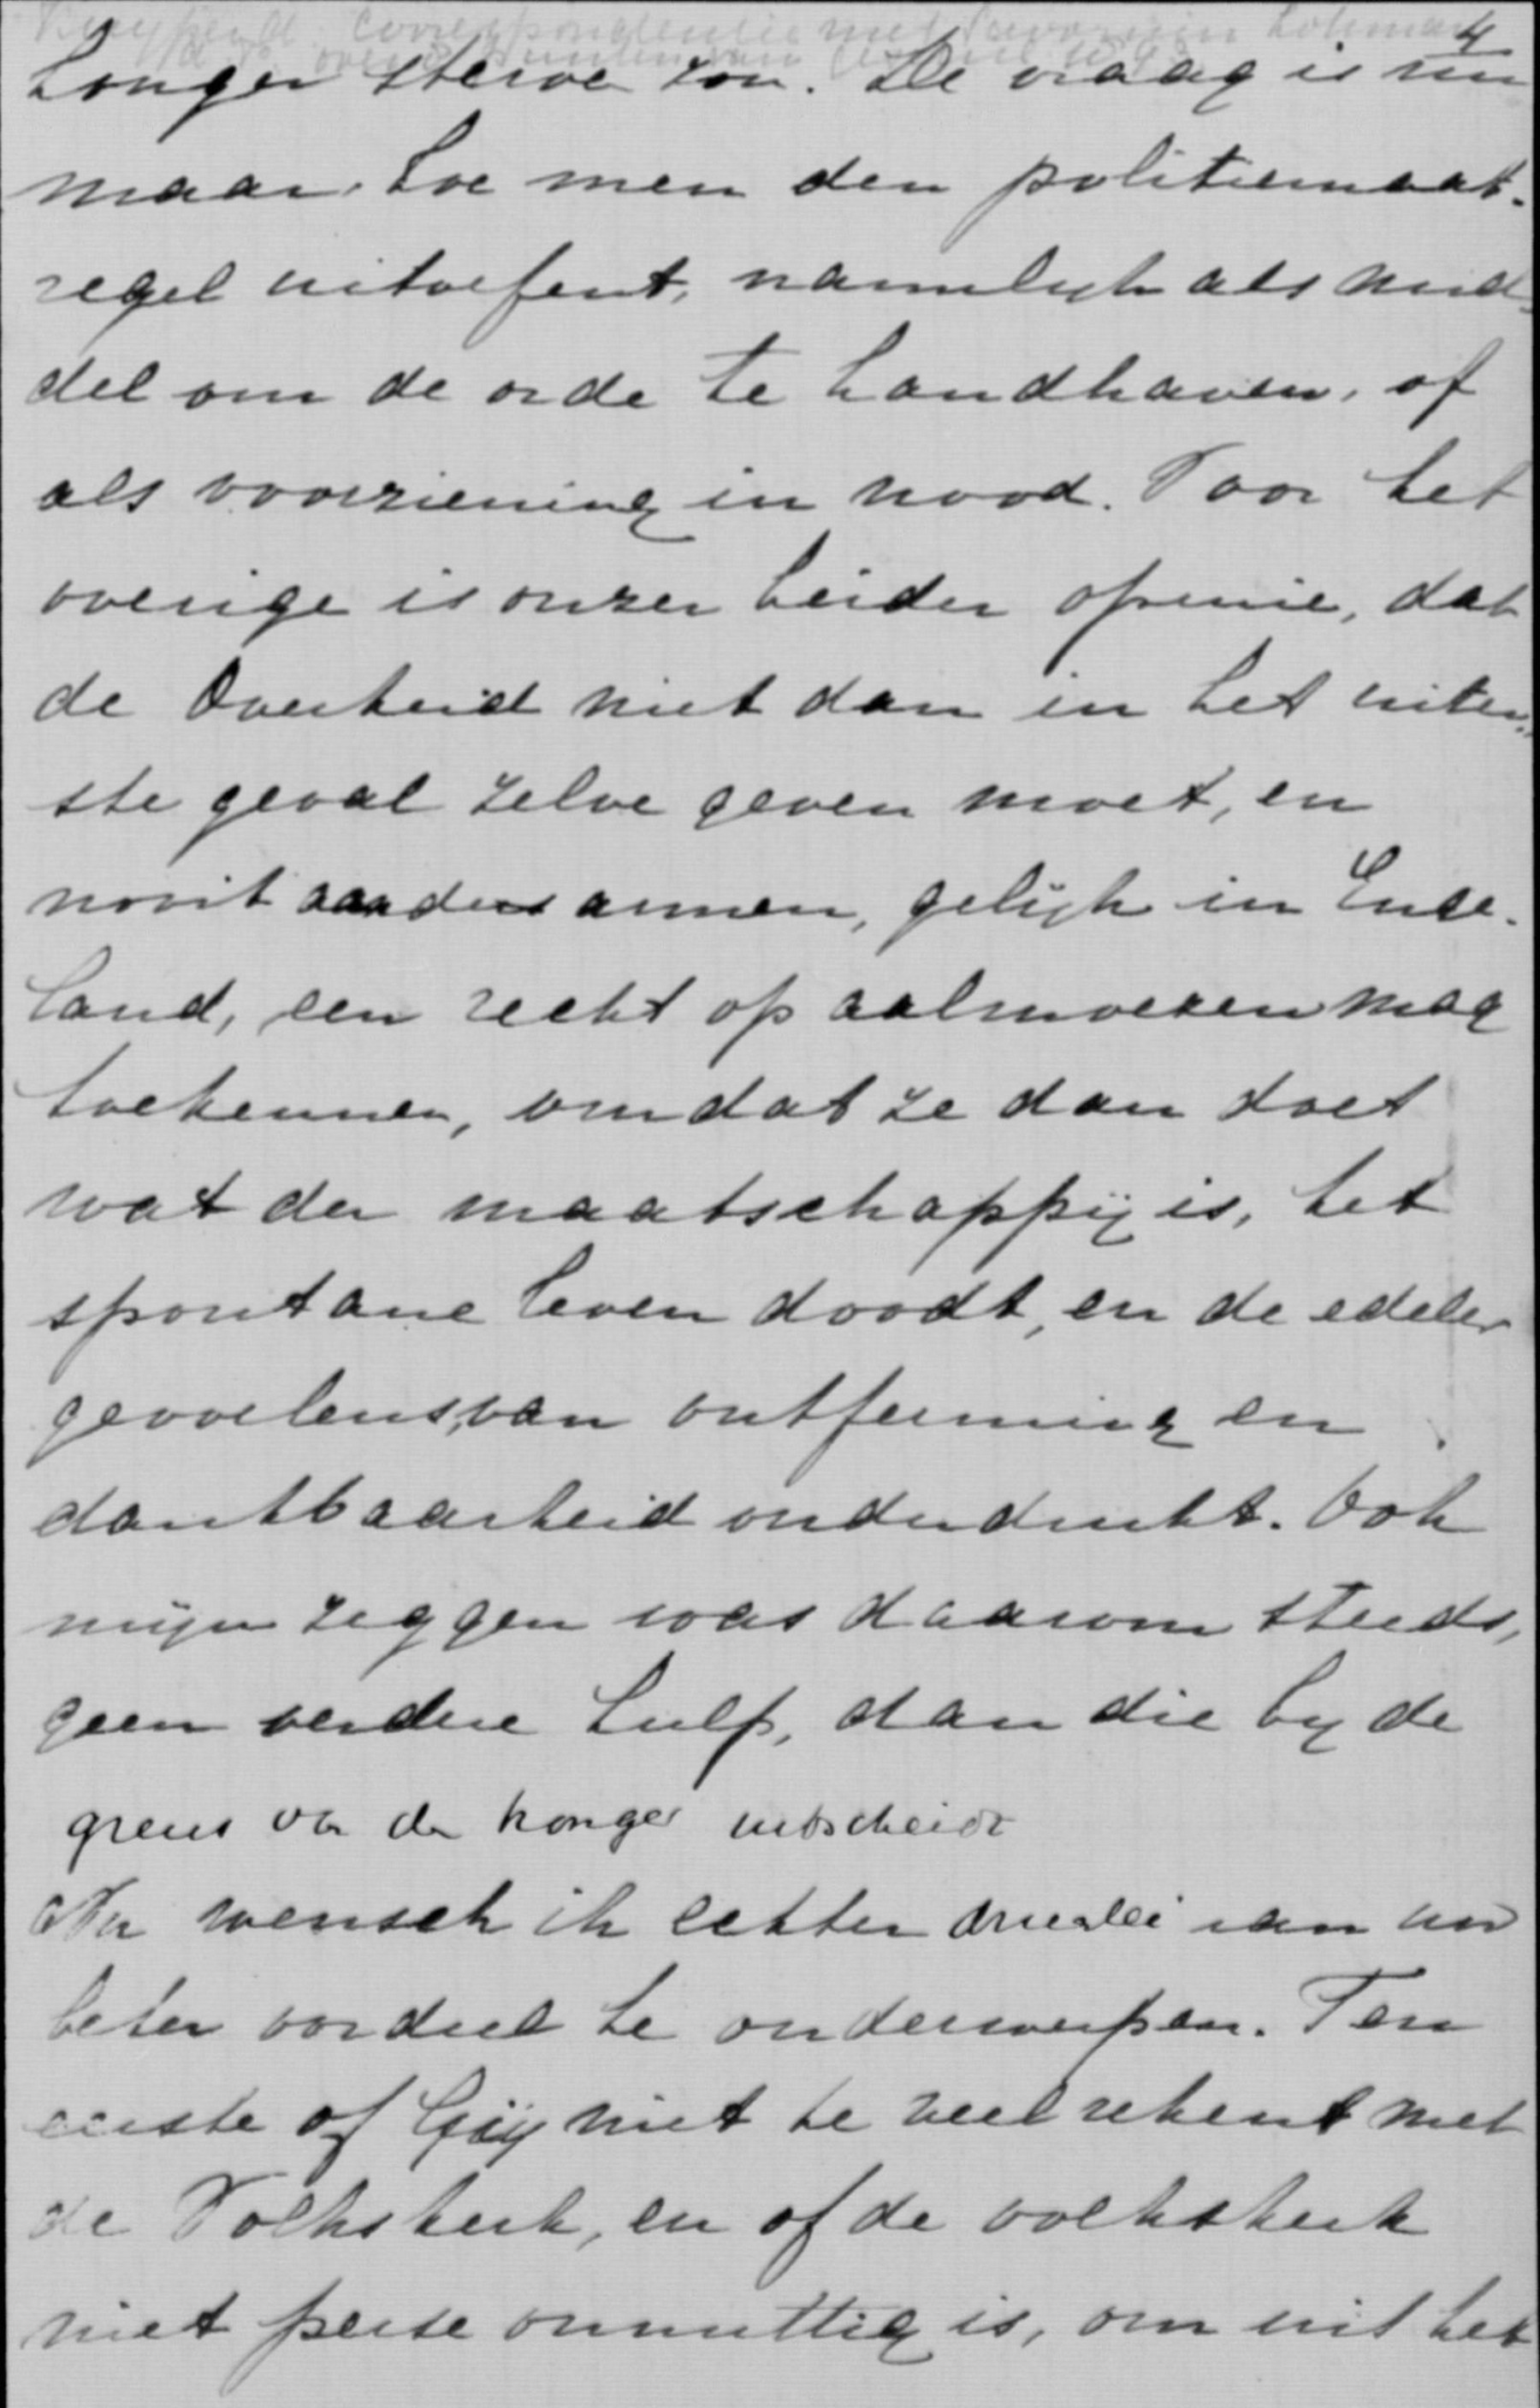 4
honger sterve zou. De vraag is nu
maar, hoe men den politiemaat-
regel uitoefent, namelijk als mid-
del om de orde te handhaven, of
als voorziening in nood. Voor het
overige is onzer beider opinie, dat
de Overheid niet dan in het uiter-
ste geval zelve geven moet, en
nooit aan den armen, gelijk in Enge-
land, een recht op aalmoezen mag
toekennen, omdat ze dan doet
wat der maatschappij is, het
spontane leven doodt, en de edeler
gevoelens van ontferming en
dankbaarheid onderdrukt. Ook
mijn zeggen was daarom steeds,
geen verdere hulp, dan die by de
grens van den honger uitscheidt
Nu wensch ik echter drieërlei aan uw
beter oordeel te onderwerpen. Ten
eerste of Gij niet te veel rekent met
de Volkskerk, en of de volkskerk
niet perse onnuttig is, om uit het